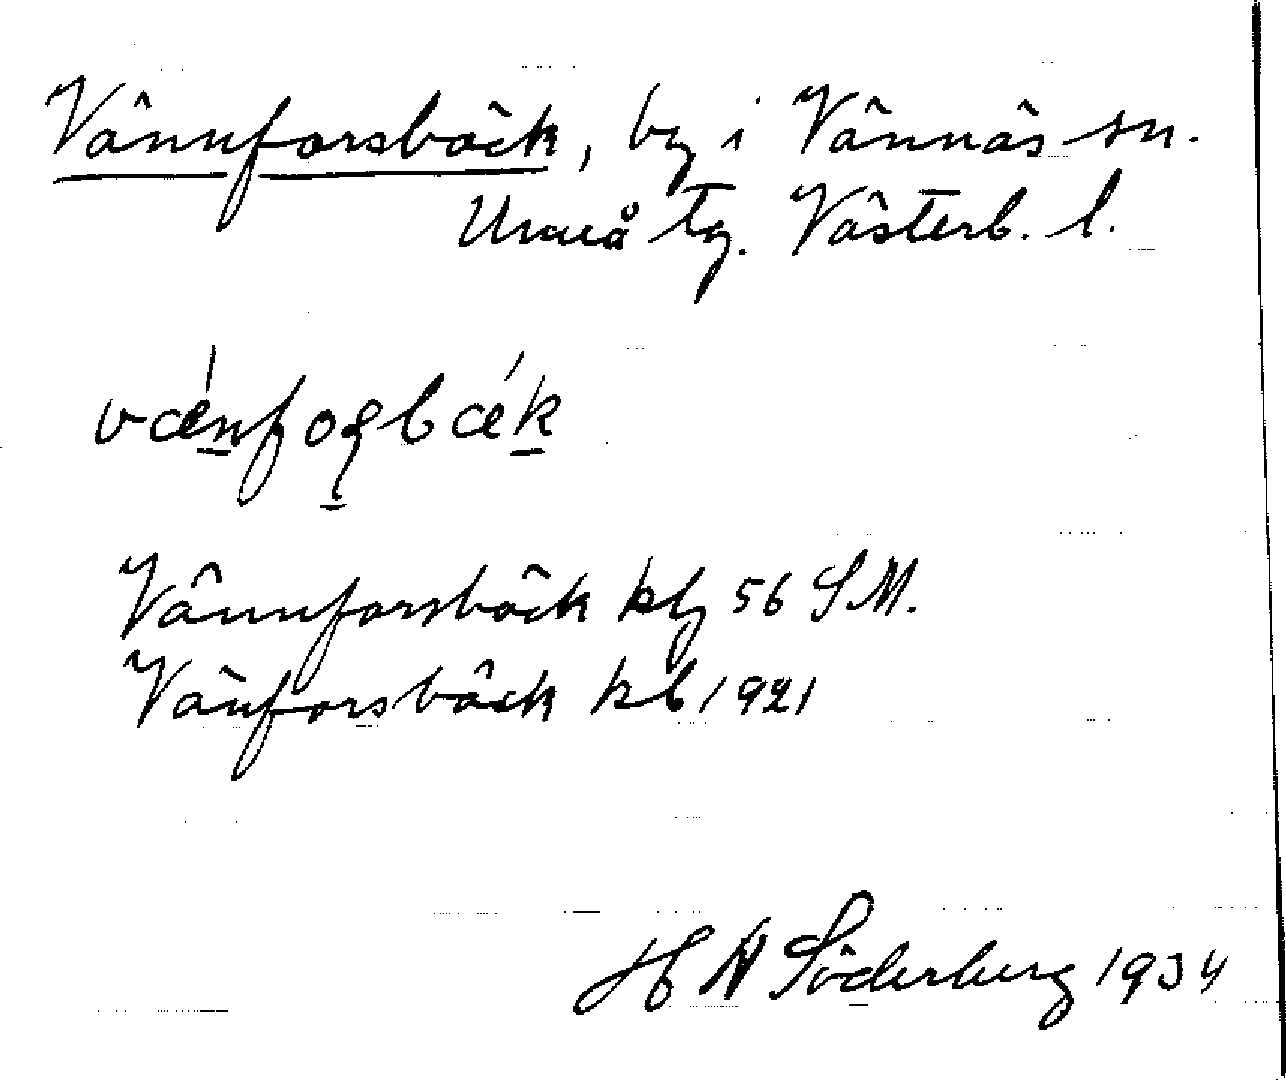 Vännforsbäck, by i Vännäs sn.
Umeå tg. Västerb. l.
Vännforsbäck 56 SM.
Vänforsbäck kb 1921
H A Söderberg 1934